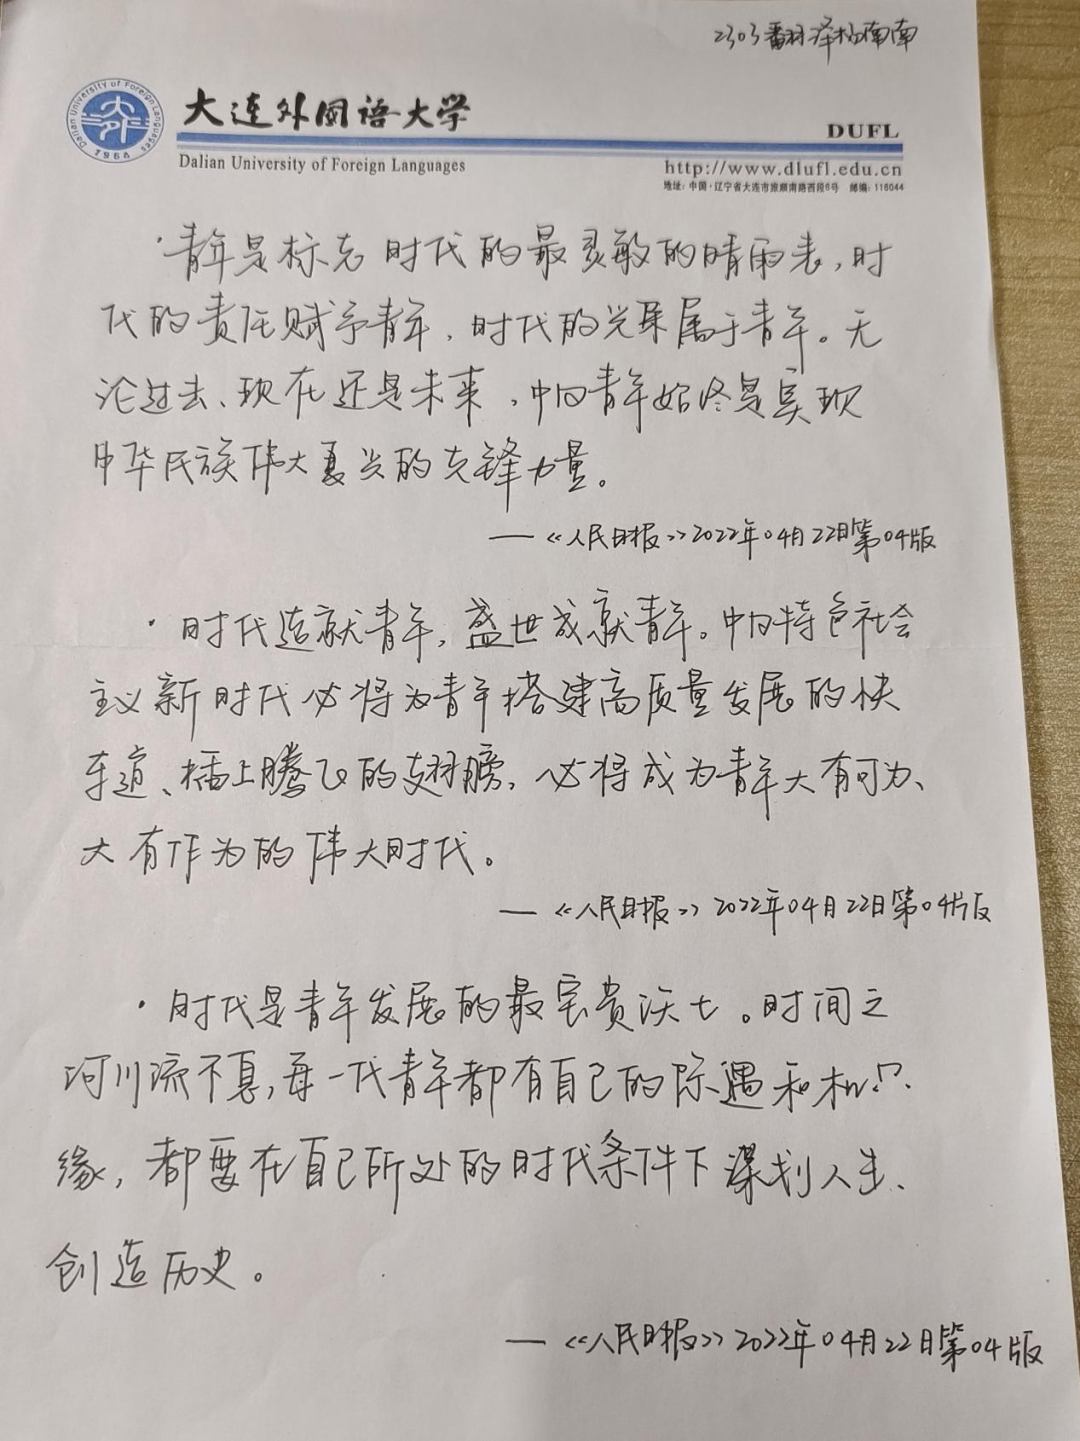 2303翻译杨南南
大连外国语大学
DUFL
Dalian University of Foreign Languages
http://www.dlufl.edu.cn
地址：中国·辽宁省大连市旅顺南路西段6号 邮编：116044
Dalian University of Foreign Languages
大外
1964
·青年是标志时代的最灵敏的晴雨表，时
代的责任赋予青年，时代的光荣属于青年。无
论过去、现在还是未来，中国青年始终是实现
中华民族伟大复兴的先锋力量。
—《人民日报》2022年04月22日第04版
·时代造就青年，盛世成就青年。中国特色社会
主义新时代必将为青年搭建高质量发展的快
车道、插上腾飞的翅膀，必将成为青年大有可为、
大有作为的伟大时代。
—《人民日报》2022年04月22日第04版
·时代是青年发展的最宝贵沃土。时间之
河川流不息，每一代青年都有自己的际遇和机
缘，都要在自己所处的时代条件下谋划人生、
创造历史。
—《人民日报》2022年04月22日第04版